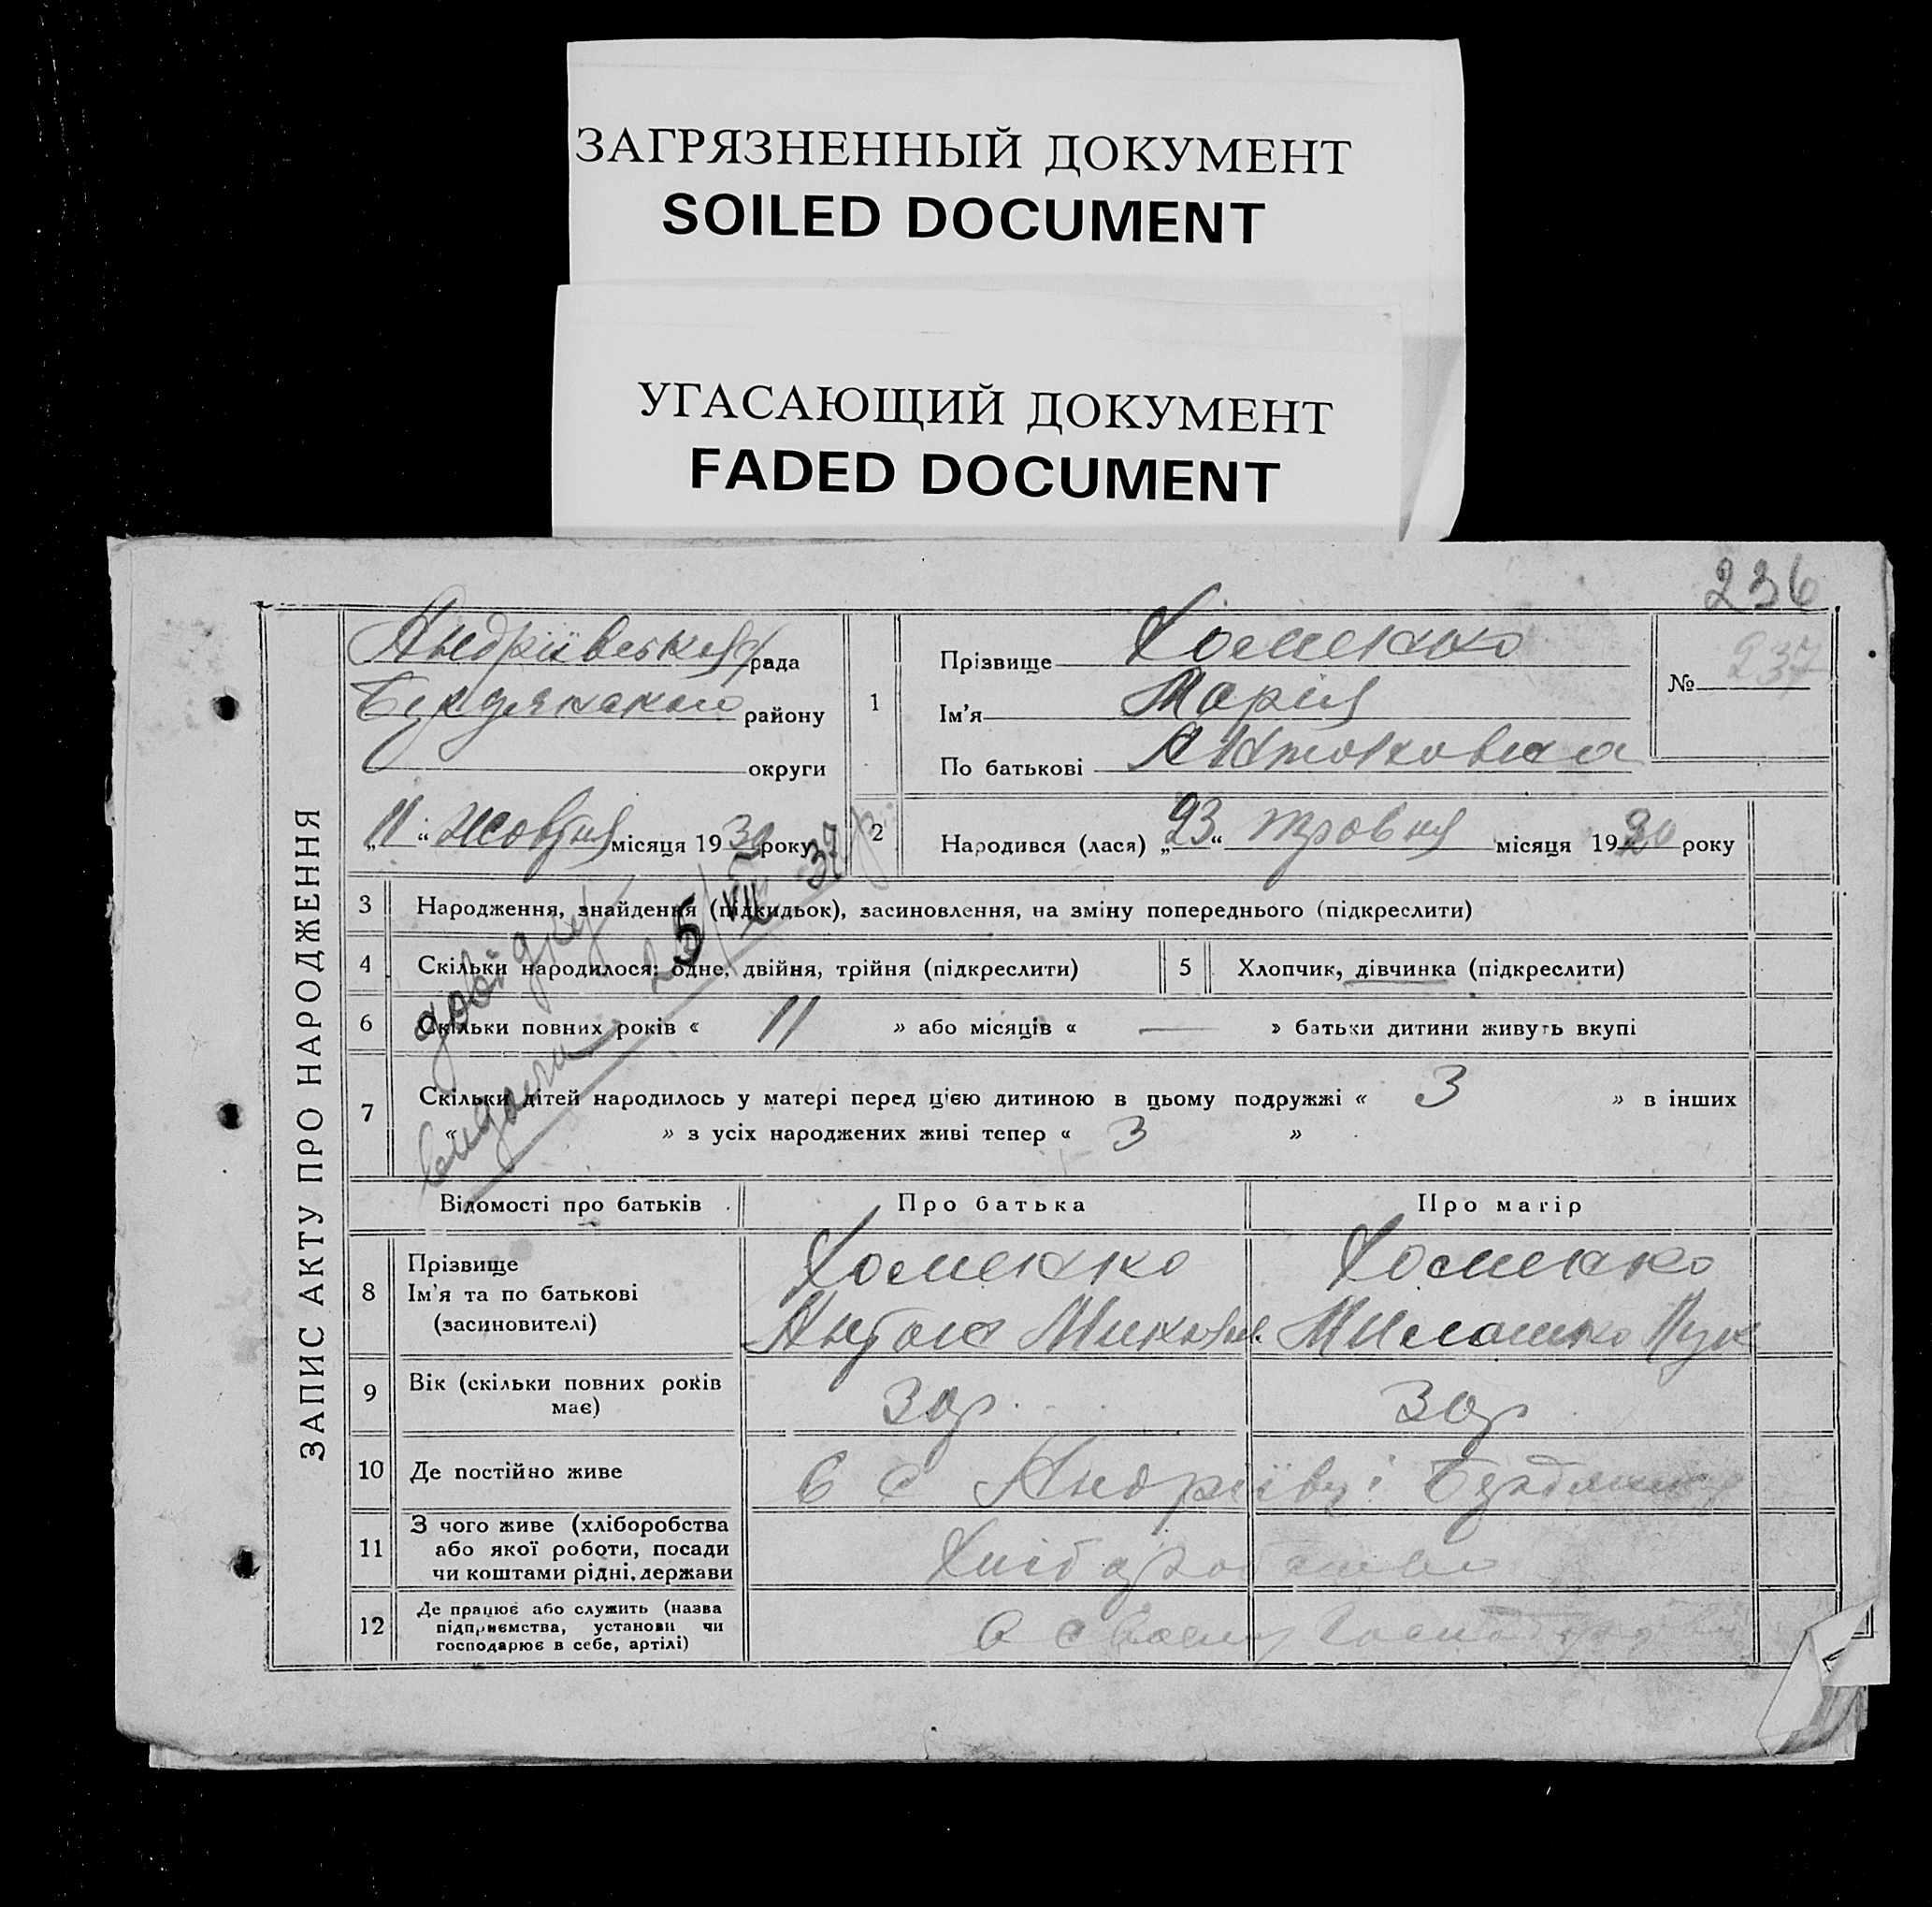 ЗАГРЯЗНЕННЫЙ ДОКУМЕНТ
SOILED DOCUMENT
УГАСАЮЩИЙ ДОКУМЕНТ
FADED DOCUMENT
236
ЗАПИС АКТУ ПРО НАРОДЖЕННЯ
Андріївська рада
Бердянського району
округи
„11“ Жовтня місяця 1930 року
1
Прізвище Хоменко
Ім'я Марія
По батькові Антоновна
№ 237
2
Народився (лася) „23“ травня місяця 1930 року
3 Народження, знайдення (підкидьок), засиновлення, на зміну попереднього (підкреслити)
4 Скільки народилося: одне, двійня, трійня (підкреслити)
5 Хлопчик, дівчинка (підкреслити)
6 Скільки повних років « 11 » або місяців « — » батьки дитини живуть вкупі
7 Скільки дітей народилось у матері перед цією дитиною в цьому подружжі « 3 » в інших
« » з усіх народжених живі тепер « 3 »
видали довідку 25/VII 37р.
Відомості про батьків
Про батька
Про матір
8 Прізвище
Ім'я та по батькові
(засиновителі)
Хоменко
Антон
Хоменко
9 Вік (скільки повних років
має)
30р.
30р
10 Де постійно живе
в с Андріївці
11 З чого живе (хліборобства
або якої роботи, посади
чи коштами рідні, держави
Хліборобство
12 Де працює або служить (назва
підприємства, установи чи
господарює в себе, артілі)
в своему